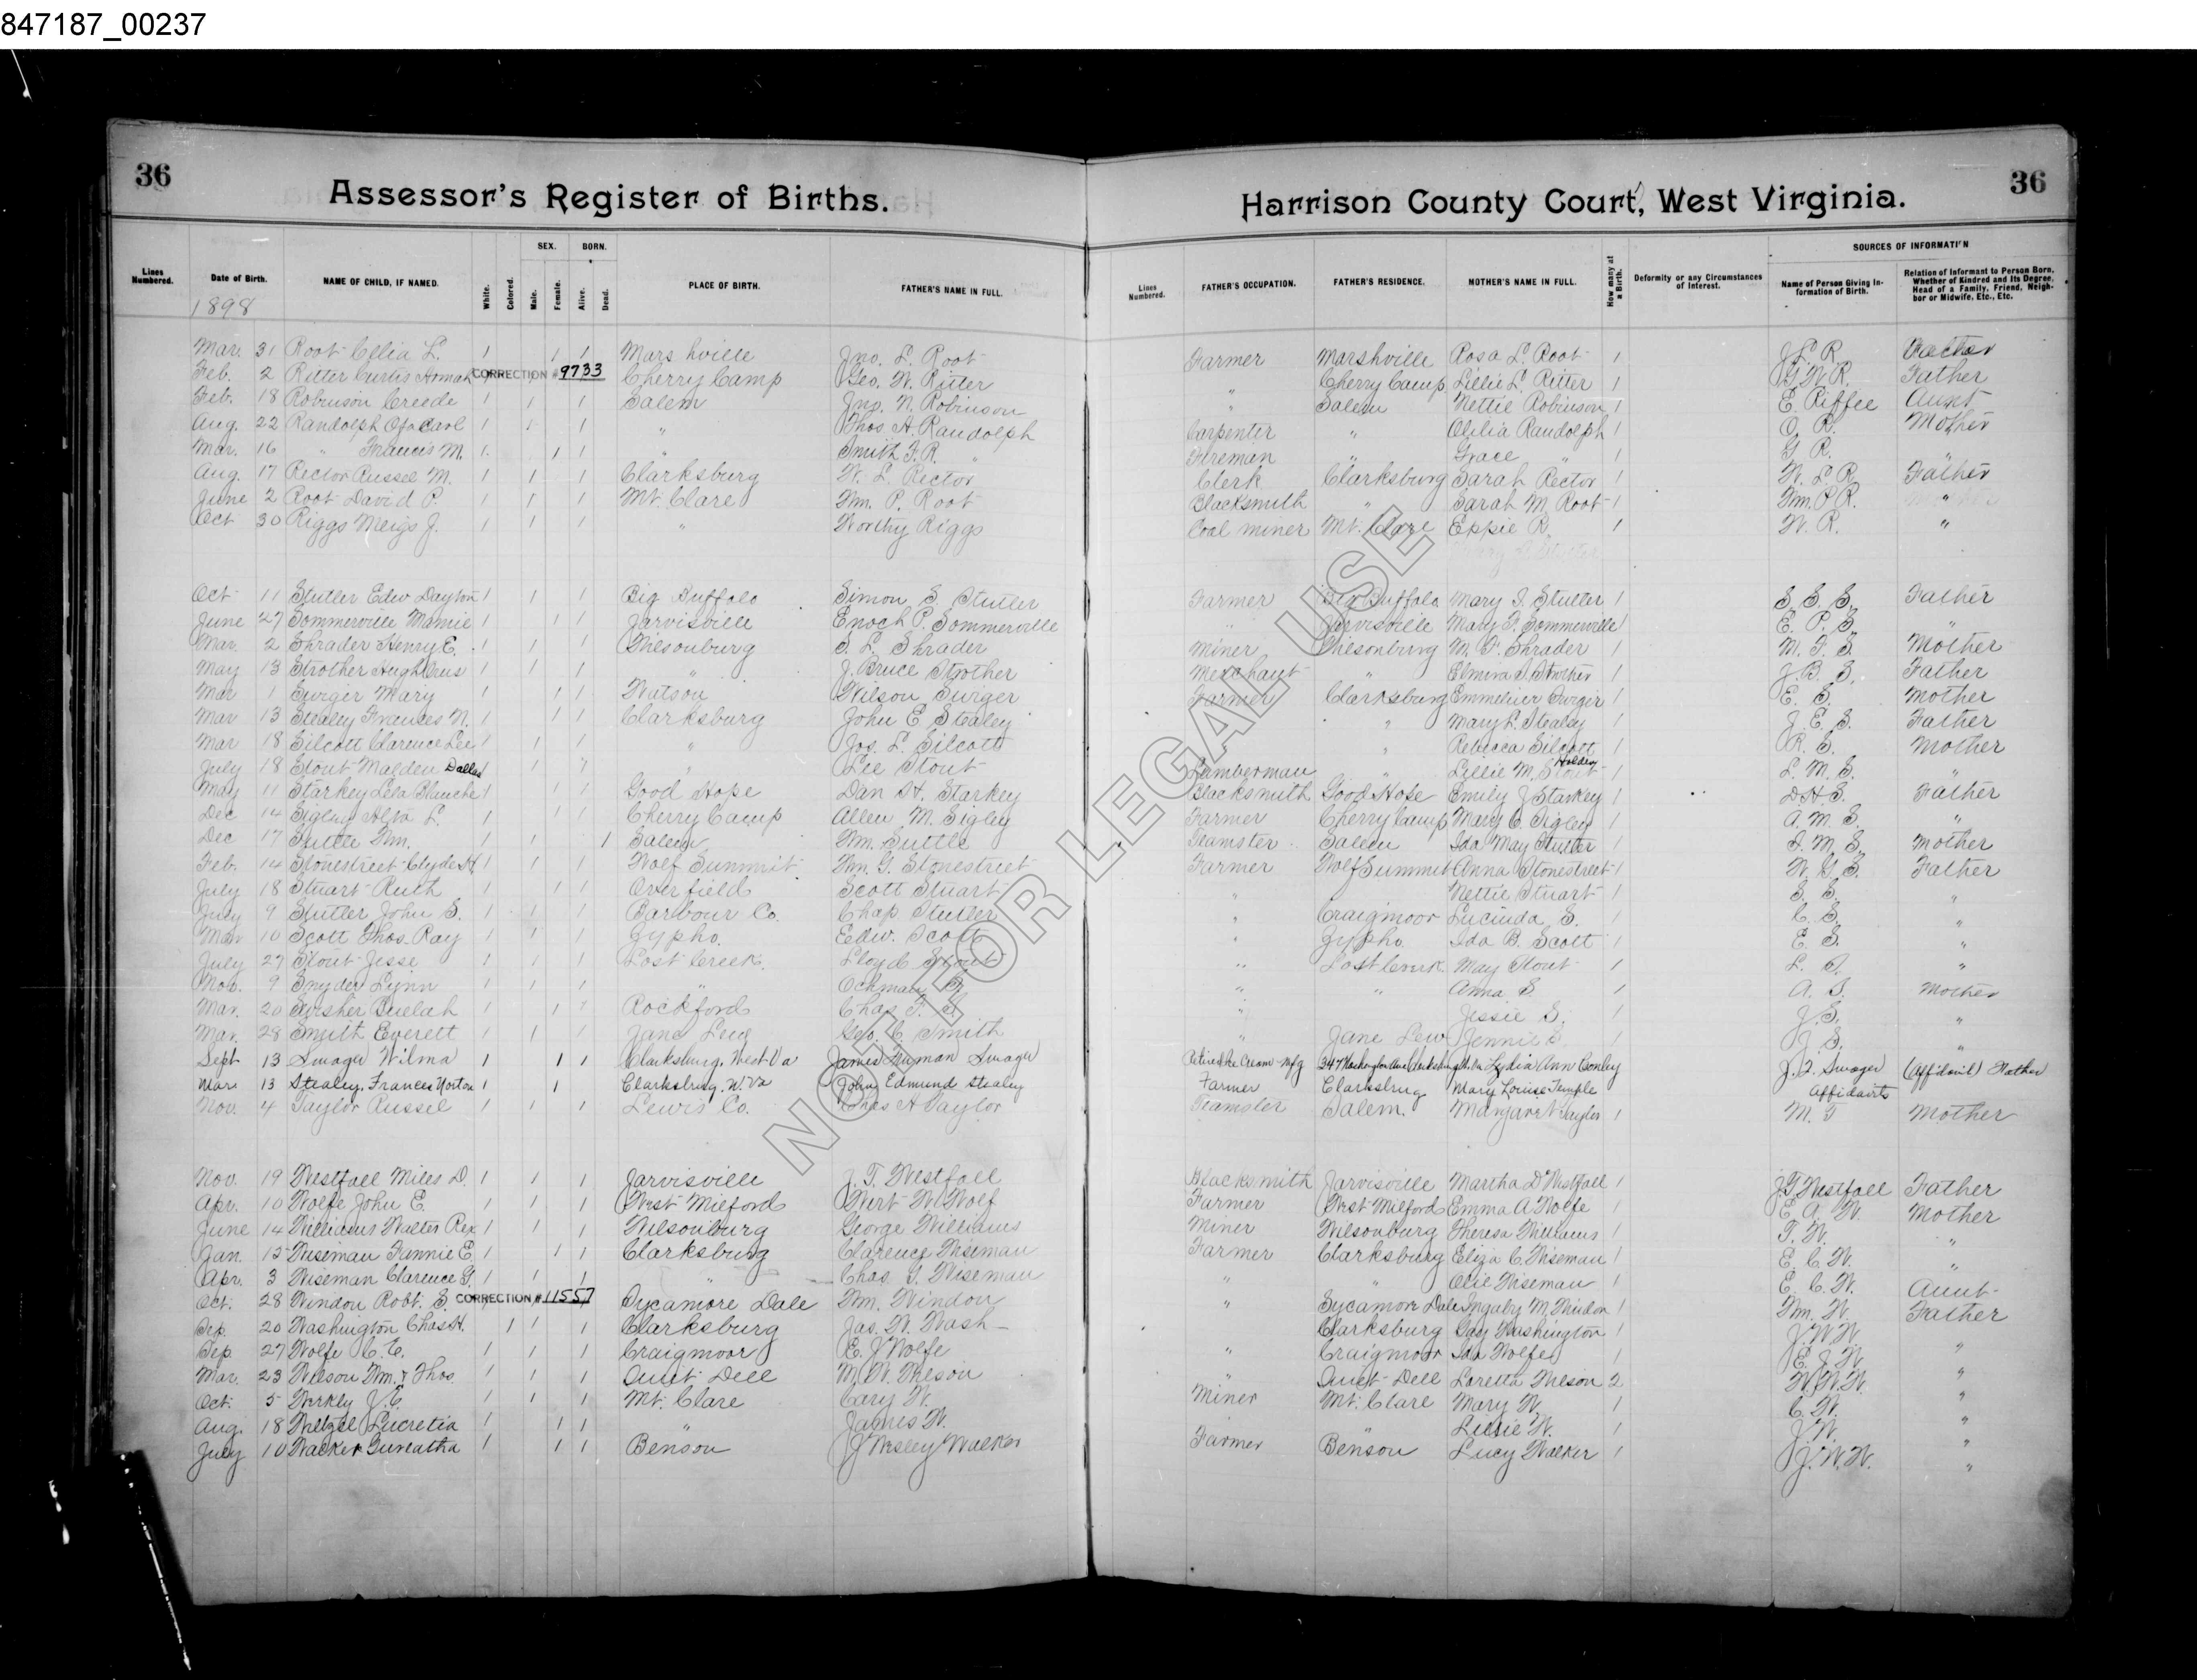 847187_00237
36
Assessor's Register of Births.
Lines Numbered.
Date of Birth.
NAME OF CHILD, IF NAMED.
White.
Colored.
SEX.
Male.
Female.
BORN.
Alive.
Dead.
PLACE OF BIRTH.
FATHER'S NAME IN FULL.
1898
Mar. 31 Root Celia L. 1 1 1 Marshville Jno. L. Root
Feb. 2 Ritter Curtis CORRECTION # 9733 Cherry Camp Geo. W. Ritter
Feb. 18 Robinson Creede 1 1 1 Salem Jno. N. Robinson
Aug. 22 Randolph Ofa Carl 1 1 1 " Thos A Randolph
Mar. 16 " Francis M. 1 1 1 " Smith F. R. "
Aug. 17 Rector Russel M. 1 1 1 Clarksburg W. L. Rector
June 2 Root David P. 1 1 1 Mt. Clare Wm. P. Root
Oct 30 Riggs Meigs J. 1 1 1 " Worthy Riggs
Oct 11 Stutler Edw Dayton 1 1 1 Big Buffalo Simon S Stutler
June 27 Sommerville Mamie 1 1 1 Jarvisville Enoch P. Sommerville
Mar. 2 Shrader Henry E. 1 1 1 Wilsonburg S. L. Shrader
May 13 Strother Hugh 1 1 1 " J. Bruce Strother
Mar 1 Swiger Mary 1 1 1 Watson Wilson Swiger
Mar 13 Stealey Frances N. 1 1 1 Clarksburg John E Stealey
Mar 18 Silcott Clarence Lee 1 1 1 " Jos. L. Silcott
July 18 Stout Malden Dallas 1 1 " Lee Stout
May 11 Starkey Lela Blanche 1 1 1 Good Hope Dan H. Starkey
Dec 14 Sigley Alva L. 1 1 1 Cherry Camp Allen M. Sigley
Dec 17 Suttle Wm. 1 1 1 Salem Wm. Suttle
Feb. 14 Stonestreet Clyde H. 1 1 1 Wolf Summit Wm. G. Stonestreet
July 18 Stuart Ruth 1 1 1 Overfield Scott Stuart
July 9 Stutler John S. 1 1 1 Barbour Co. Chap Stutler
Mar 10 Scott Thos. Ray 1 1 1 Gypho. Edw. Scott
July 27 Stout Jesse 1 1 1 Lost Creek. Lloyd Stout
Nov. 9 Snyder Lynn 1 1 1 " Ockman S.
Mar. 20 Swisher Buelah 1 1 1 Rockford Chas F. S.
Mar. 28 Smith Everett 1 1 1 Jane Lew Geo. C Smith
Sept 13 Swager Wilma 1 1 1 Clarksburg, West Va James Truman Swager
Mar 13 Stealey, Frances Norton 1 1 Clarksburg, W.Va John Edmund Stealey
Nov. 4 Taylor Russel 1 1 1 Lewis Co. Chas A Taylor
Nov. 19 Westfall Miles D. 1 1 1 Jarvisville J. T. Westfall
Apr. 10 Wolfe John E. 1 1 1 West Milford Wert W. Wolf
June 14 Williams Walter Rex 1 1 1 Wilsonburg George Williams
Jan. 15 Wiseman Fannie E. 1 1 1 Clarksburg Clarence Wiseman
Apr. 3 Wiseman Clarence G. 1 1 1 " Chas. G. Wiseman
Oct. 28 Windon Robt. S. CORRECTION # 11557 Sycamore Dale Wm. Windon
Sep. 20 Washington Chas H. 1 1 1 Clarksburg Jas. W. Wash-
Sep. 27 Wolfe C. C. 1 1 1 Craigmoor E. J Wolfe
Mar. 23 Wilson Wm. & Thos. 1 1 1 Quiet Dell M. W. Wilson
Oct. 5 Werkly J. C. 1 1 1 Mt. Clare Cary W.
Aug. 18 Wetzel Lucretia 1 1 1 " James W.
July 10 Walker 1 1 1 Benson J Wesley Walker
Harrison County Court, West Virginia.
36
Lines Numbered.
FATHER'S OCCUPATION.
FATHER'S RESIDENCE.
MOTHER'S NAME IN FULL.
How many at a Birth.
Deformity or any Circumstances of Interest.
SOURCES OF INFORMATION
Name of Person Giving Information of Birth.
Relation of Informant to Person Born, Whether of Kindred and Its Degree, Head of a Family, Friend, Neighbor or Midwife, Etc., Etc.
Farmer Marshville Rosa L. Root 1 J L R Father
" Cherry Camp Lillie L. Ritter 1 G. W. R. Father
" Salem Nettie Robinson 1 E. Riffee Aunt
Carpenter " Olilia Randolph 1 O. R. Mother
Fireman " Grace " 1 G R. "
Clerk Clarksburg Sarah Rector 1 W. L R Father
Blacksmith " Sarah M Root 1 Wm. P R. "
Coal miner Mt. Clare Eppie R. 1 W. R. "
Farmer Big Buffalo Mary I. Stutler 1 S. S. S. Father
" Jarvisville Mary F. Sommerville 1 E. P. S. "
Miner Wilsonburg M. F. Shrader 1 M. F. S. Mother
Merchant " Elmira Strother 1 J. B. S. Father
Farmer Clarksburg Swiger 1 E. S. Mother
" Mary L Stealey 1 J. E. S. Father
" Rebecca Silcott 1 R. S. Mother
Lumberman " Lillie M. Holden Stout 1 L. M. S. "
Blacksmith Good Hope Emily J Starkey 1 D H S. Father
Farmer Cherry Camp Mary C. Sigley 1 A. M. S. "
Teamster Salem Ida May Suttle 1 I. M. S. Mother
Farmer Wolf Summit Anna Stonestreet 1 W. G. S. Father
" Nettie Stuart 1 S. S. "
" Craigmoor Lucinda S. 1 C. S. "
" Gypho. Ida B. Scott 1 E. S. "
" Lost Creek May Stout 1 L. S. "
" " Anna S. 1 A. S. Mother
" Jessie S. 1 J. S. "
" Jane Lew Jennie S 1 J. S. "
Retired Ice Cream Mfg 347 Washington Ave Clarksburg W. Va Lydia Ann Conley J. T. Swager (Affidavit) Father
Farmer Clarksburg Mary Louise Temple Affidavits
Teamster Salem. Margaret Taylor 1 M. T Mother
Blacksmith Jarvisville Martha D. Westfall 1 J T Westfall Father
Farmer West Milford Emma A Wolfe 1 E. A. W. Mother
Miner Wilsonburg Theresa Williams 1 T. W. "
Farmer Clarksburg Eliza C. Wiseman 1 E. C. W. "
" " Olie Wiseman 1 E. C. W. Aunt
" Sycamore Dale Ingaby M. Windon 1 Wm. W. Father
Clarksburg Gay Washington 1 J. W. W. "
" Craigmoor Ida Wolfe 1 E. J. W. "
" Quiet Dell Loretta Wilson 2 W. W. W. "
Miner Mt. Clare Mary W. 1 C. W. "
" Lillie W. 1 J. W. "
Farmer Benson Lucy Walker 1 J. W. W. "
NOT FOR LEGAL USE